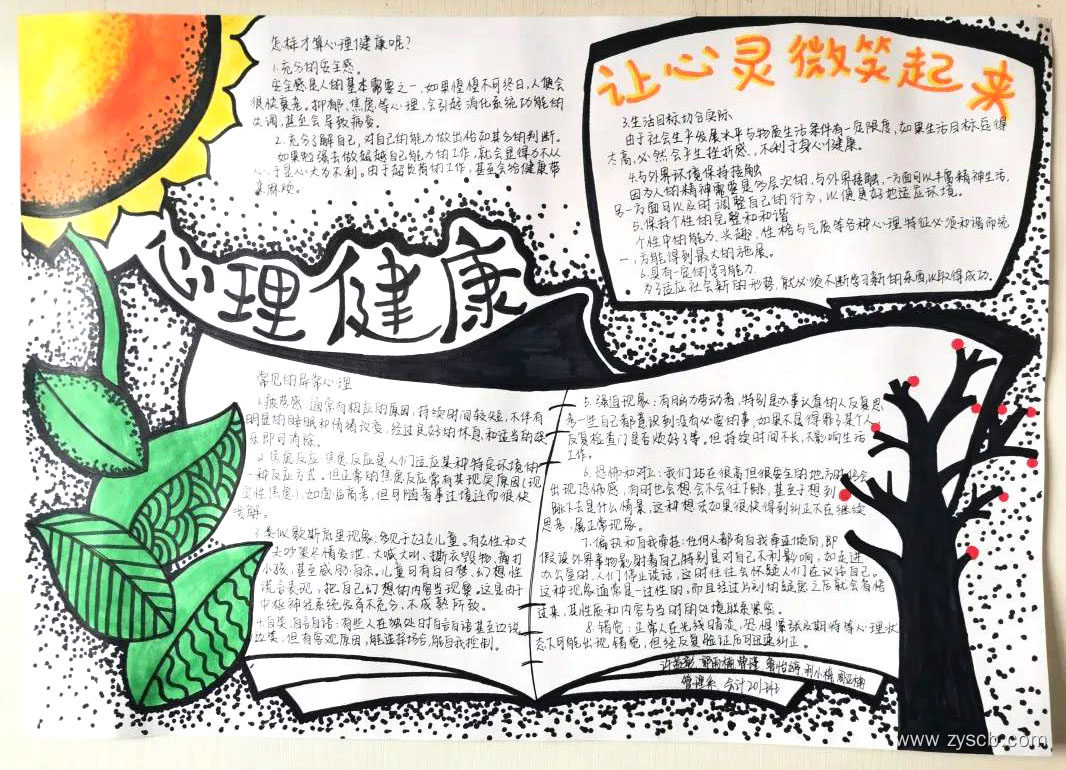 怎样才算心理健康呢?
1.充分的安全感。
安全感是人的基本需要之一,如果惶惶不可终日,人便会
很快衰老。抑郁、焦虑等心理,会引起消化系统功能的
失调,甚至会导致病变。
2.充分了解自己,对自己的能力做出恰如其分的判断。
如果勉强去做超越自己能力的工作,就会显得力不从
心,于身心大为不利。由于超负荷的工作,甚至会给健康带
来麻烦。
让心灵微笑起来
3.生活目标切合实际
由于社会生产发展水平与物质生活条件有一定限度,如果生活目标定得
太高,必然会产生挫折感,不利于身心健康。
4.与外界环境保持接触
因为人的精神需要是多层次的,与外界接触,一方面可以丰富精神生活,
另一方面可以及时调整自己的行为,以便更好地适应环境。
5.保持个性的完整和和谐
个性中的能力、兴趣、性格与气质等各种心理特征必须和谐而统
一,方能得到最大的施展。
6.具有一定的学习能力
为了适应社会新的形势,就必须不断学习新的东西以取得成功.
心理健康
常见的异常心理
1.疲劳感 通常有相应的原因,持续时间较短,不伴有
明显的睡眠和情绪改变,经过良好的休息和适当的娱
乐即可消除。
2.焦虑反应:焦虑反应是人们适应某种特定环境的
一种反应方式。但正常的焦虑反应常有其现实原因(现
实性焦虑),如面临高考,但可随着事过境迁而很快
缓解。
3.类似歇斯底里现象:多见于妇女儿童。有女性和丈
夫吵架尽情发泄、大喊大叫、撕衣毁物、痛打
小孩,甚至威胁自杀。儿童可有白日梦、幻想性
谎言表现,把自己幻想的内容当现实。这是由于
中枢神经系统发育不充分,不成熟所致。
4.自笑、自言自语:有些人在独处时自言自语甚至边说
边笑,但有客观原因,能选择场合,能自我控制。
5.强迫现象:有脑力劳动者,特别是办事认真的人反复思
考一些自己都意识到没有必要的事,如果不是得罪了某个人,
反复检查门是否收好了等。但持续时间不长,不影响生活
工作。
6.恐怖和对立:我们站在很高但很安全的地方时仍会
出现恐怖感,有时也会想会不会往下跳,甚至于想到
跳下去是什么情景,这种想法如果很快得到纠正不在继续
思考,属正常现象。
7.偏执和自我牵挂:任何人都有自我牵连倾向,即
假设外界事物影射着自己特别是对自己不利影响,如走进
办公室时,人们停止谈话,这时往往会怀疑人们在议论自己。
这种现象通常是一过性的,而且经过片刻的疑虑之后就会省悟
过来,其性质和内容与当时的处境联系紧密。
8.错觉:正常人在光线暗淡、恐惧紧张及期待等心理状
态下可能出现错觉,但经反复验证后可迅速纠正。
管理系 会计201班
www.zyscb.com